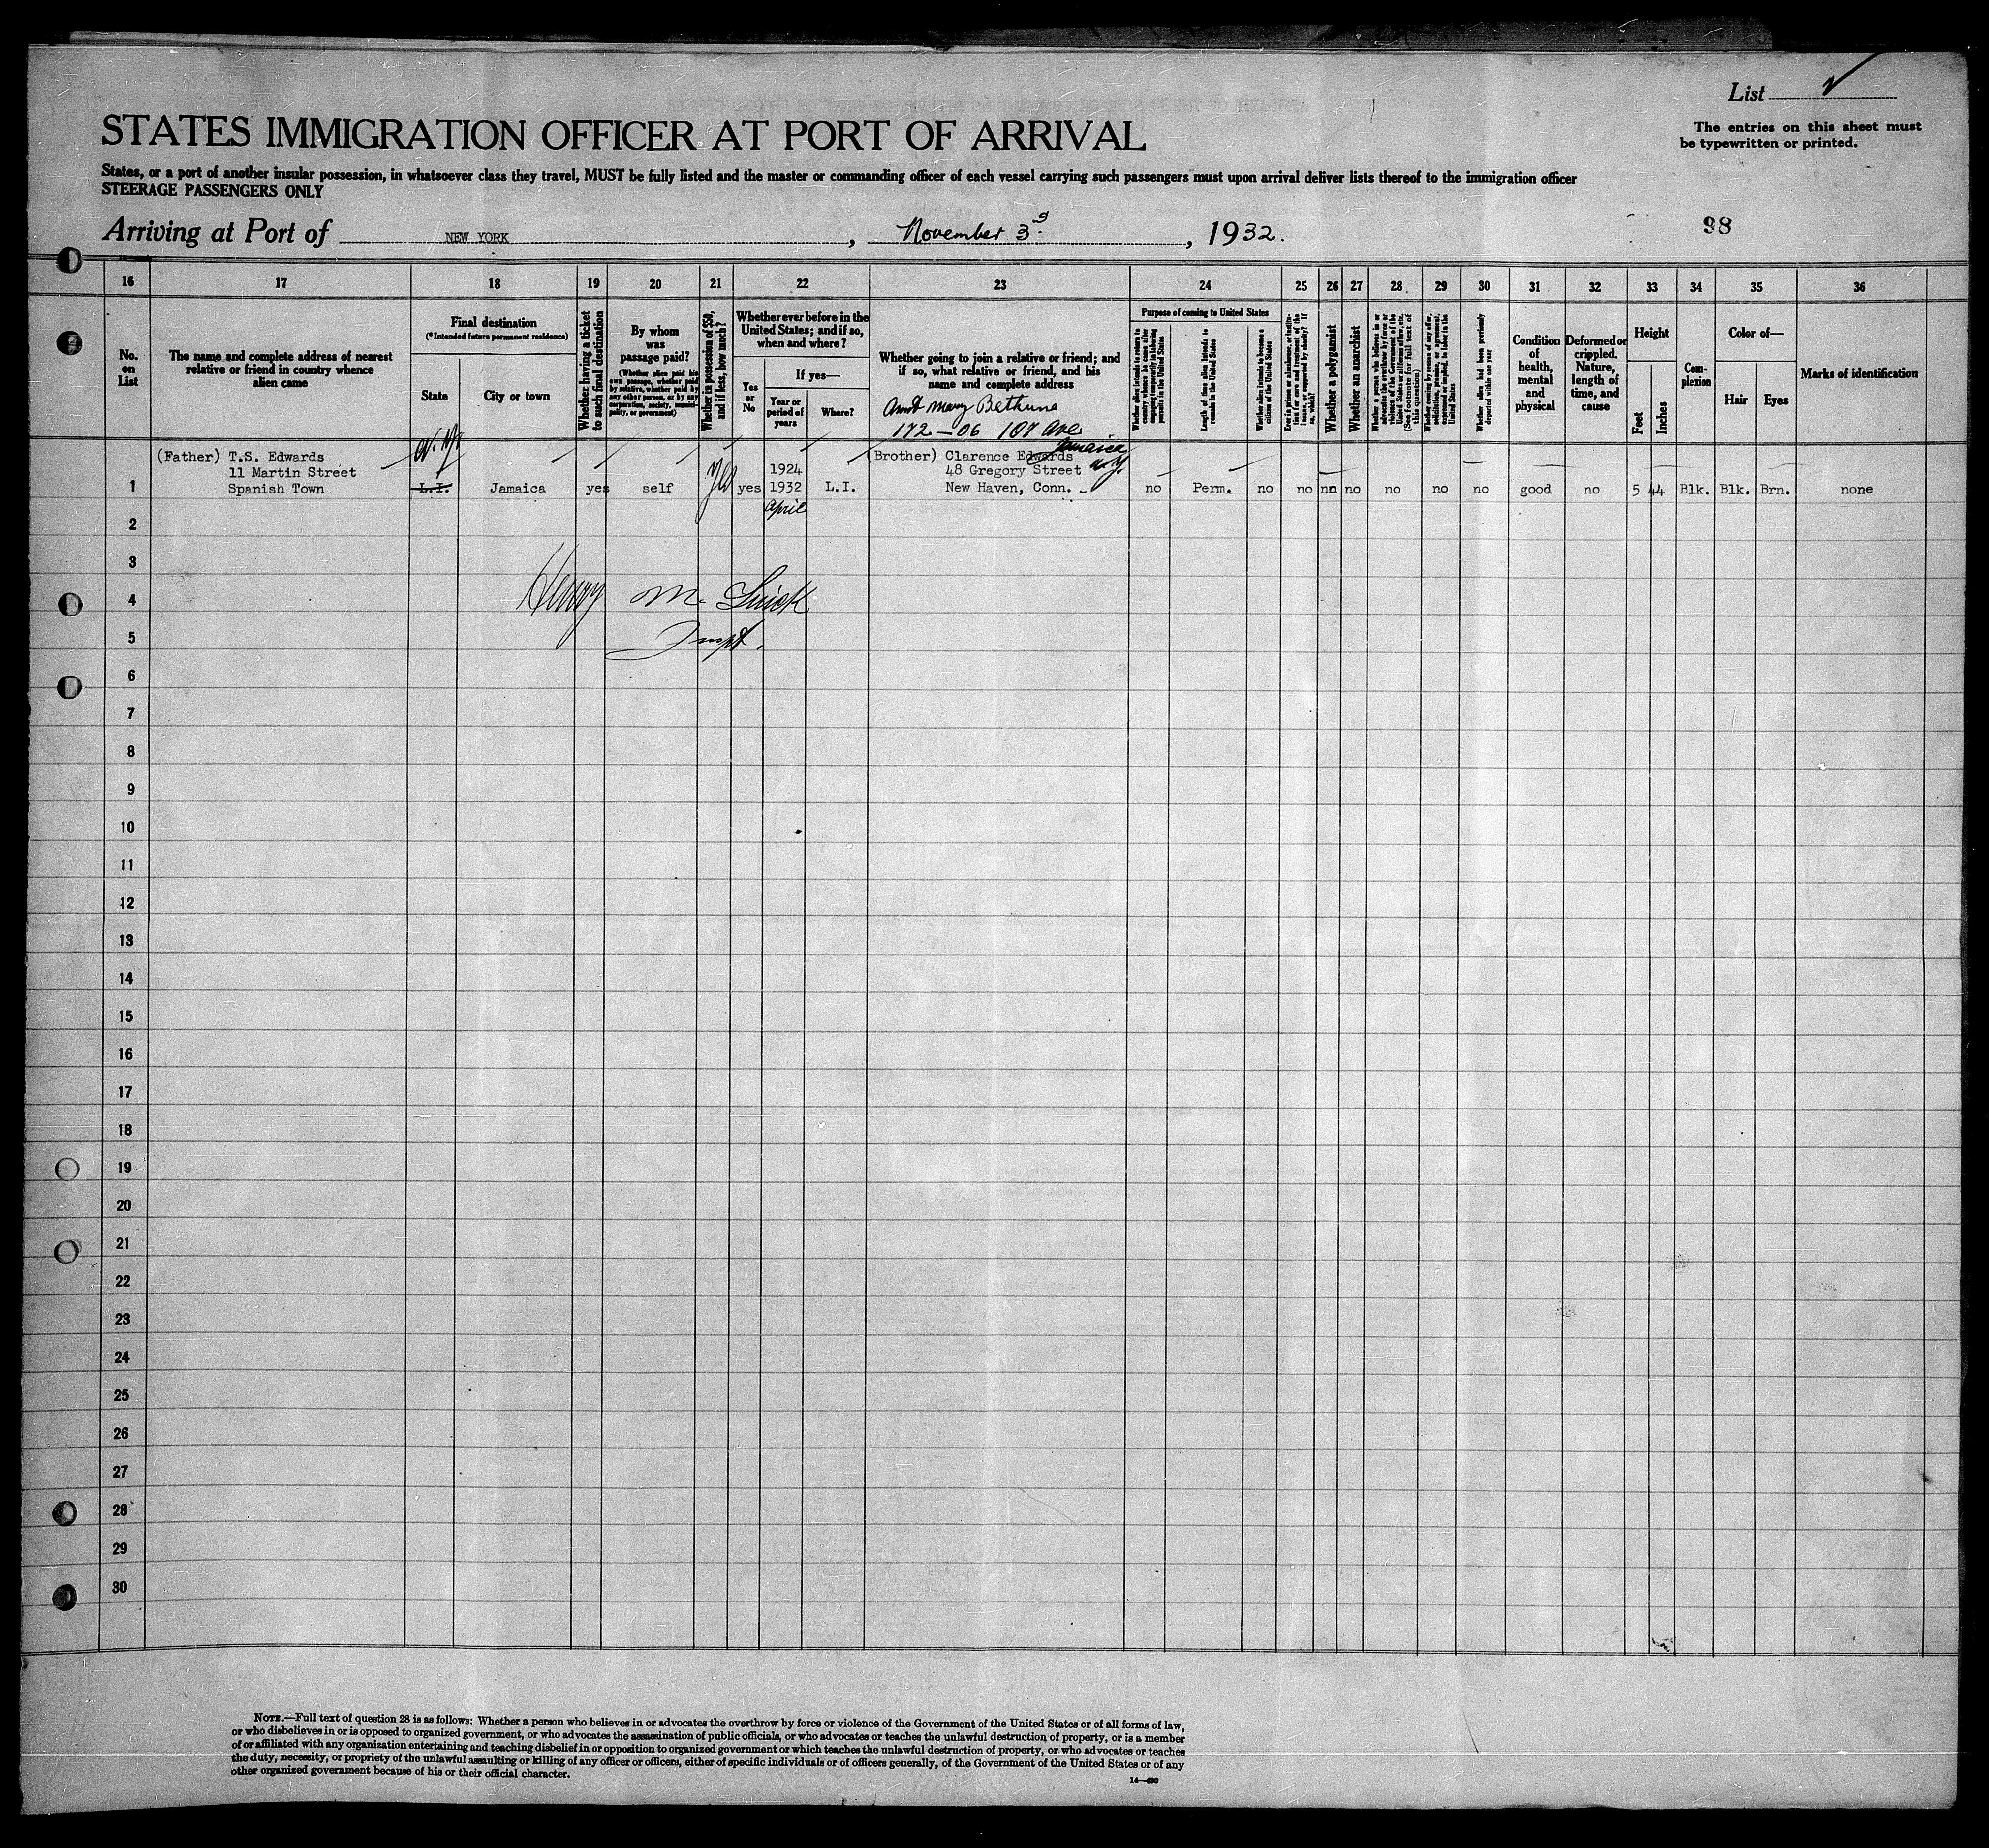 List
STATES IMMIGRATION OFFICER AT PORT OF ARRIVAL
The entries on this sheet must
be typewritten or printed.
States, or a port of another insular possession, in whatsoever class they travel, MUST be fully listed and the master or commanding officer of each vessel carrying such passengers must upon arrival deliver lists thereof to the immigration officer
STEERAGE PASSENGERS ONLY
Arriving at Port of NEW YORK, November 3, 1932.
98
16 17 18 19 20 21 22 23 24 25 26 27 28 29 30 31 32 33 34 35 36
No.
on
List
The name and complete address of nearest
relative or friend in country whence
alien came
Final destination
(*Intended future permanent residence)
State
City or town
Whether having a ticket
to such final destination
By whom
was
passage paid?
(Whether alien paid his
own passage, whether paid
by relative, whether paid by
any other person, or by any
corporation, society, munici-
pality, or government)
Whether in possession of $50,
and if less, how much?
Whether ever before in the
United States; and if so,
when and where?
Yes
or
No
If yes—
Year or
period of
years
Where?
Whether going to join a relative or friend; and
if so, what relative or friend, and his
name and complete address
Aunt Mary Bethune
172—06 107 Ave
Jamaica
N.Y.
Purpose of coming to United States
Whether alien intends to return to
country whence he came after
engaging temporarily in laboring
pursuits in the United States
Length of time alien intends to
remain in the United States
Whether alien intends to become a
citizen of the United States
Whether a polygamist
Whether an anarchist
(See footnote for full text of
this question)
Whether alien had been previously
deported within one year
Condition
of
health,
mental
and
physical
Deformed or
crippled.
Nature,
length of
time, and
cause
Height
Feet
Inches
Com-
plexion
Color of—
Hair
Eyes
Marks of identification
N.Y.
(Father) T.S. Edwards
11 Martin Street
Spanish Town
1 L.I. Jamaica yes self yes yes 1924
1932
April
L.I.
(Brother) Clarence Edwards
48 Gregory Street
New Haven, Conn.
no Perm. no no no no no no no good no 5 44 Blk. Blk. Brn. none
2
3
Henry M.
4
5
Inspt.
6
7
8
9
10
11
12
13
14
15
16
17
18
19
20
21
22
23
24
25
26
27
28
29
30
NOTE.—Full text of question 28 is as follows: Whether a person who believes in or advocates the overthrow by force or violence of the Government of the United States or of all forms of law,
or who disbelieves in or is opposed to organized government, or who advocates the assassination of public officials, or who advocates or teaches the unlawful destruction of property, or is a member
of or affiliated with any organization entertaining and teaching disbelief in or opposition to organized government or which teaches the unlawful destruction of property, or who advocates or teaches
the duty, necessity, or propriety of the unlawful assaulting or killing of any officer or officers, either of specific individuals or of officers generally, of the Government of the United States or of any
other organized government because of his or their official character.
14—430